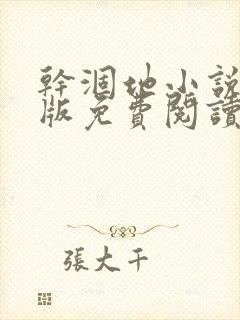 幹涸地小説
版免費閱讀
張大千